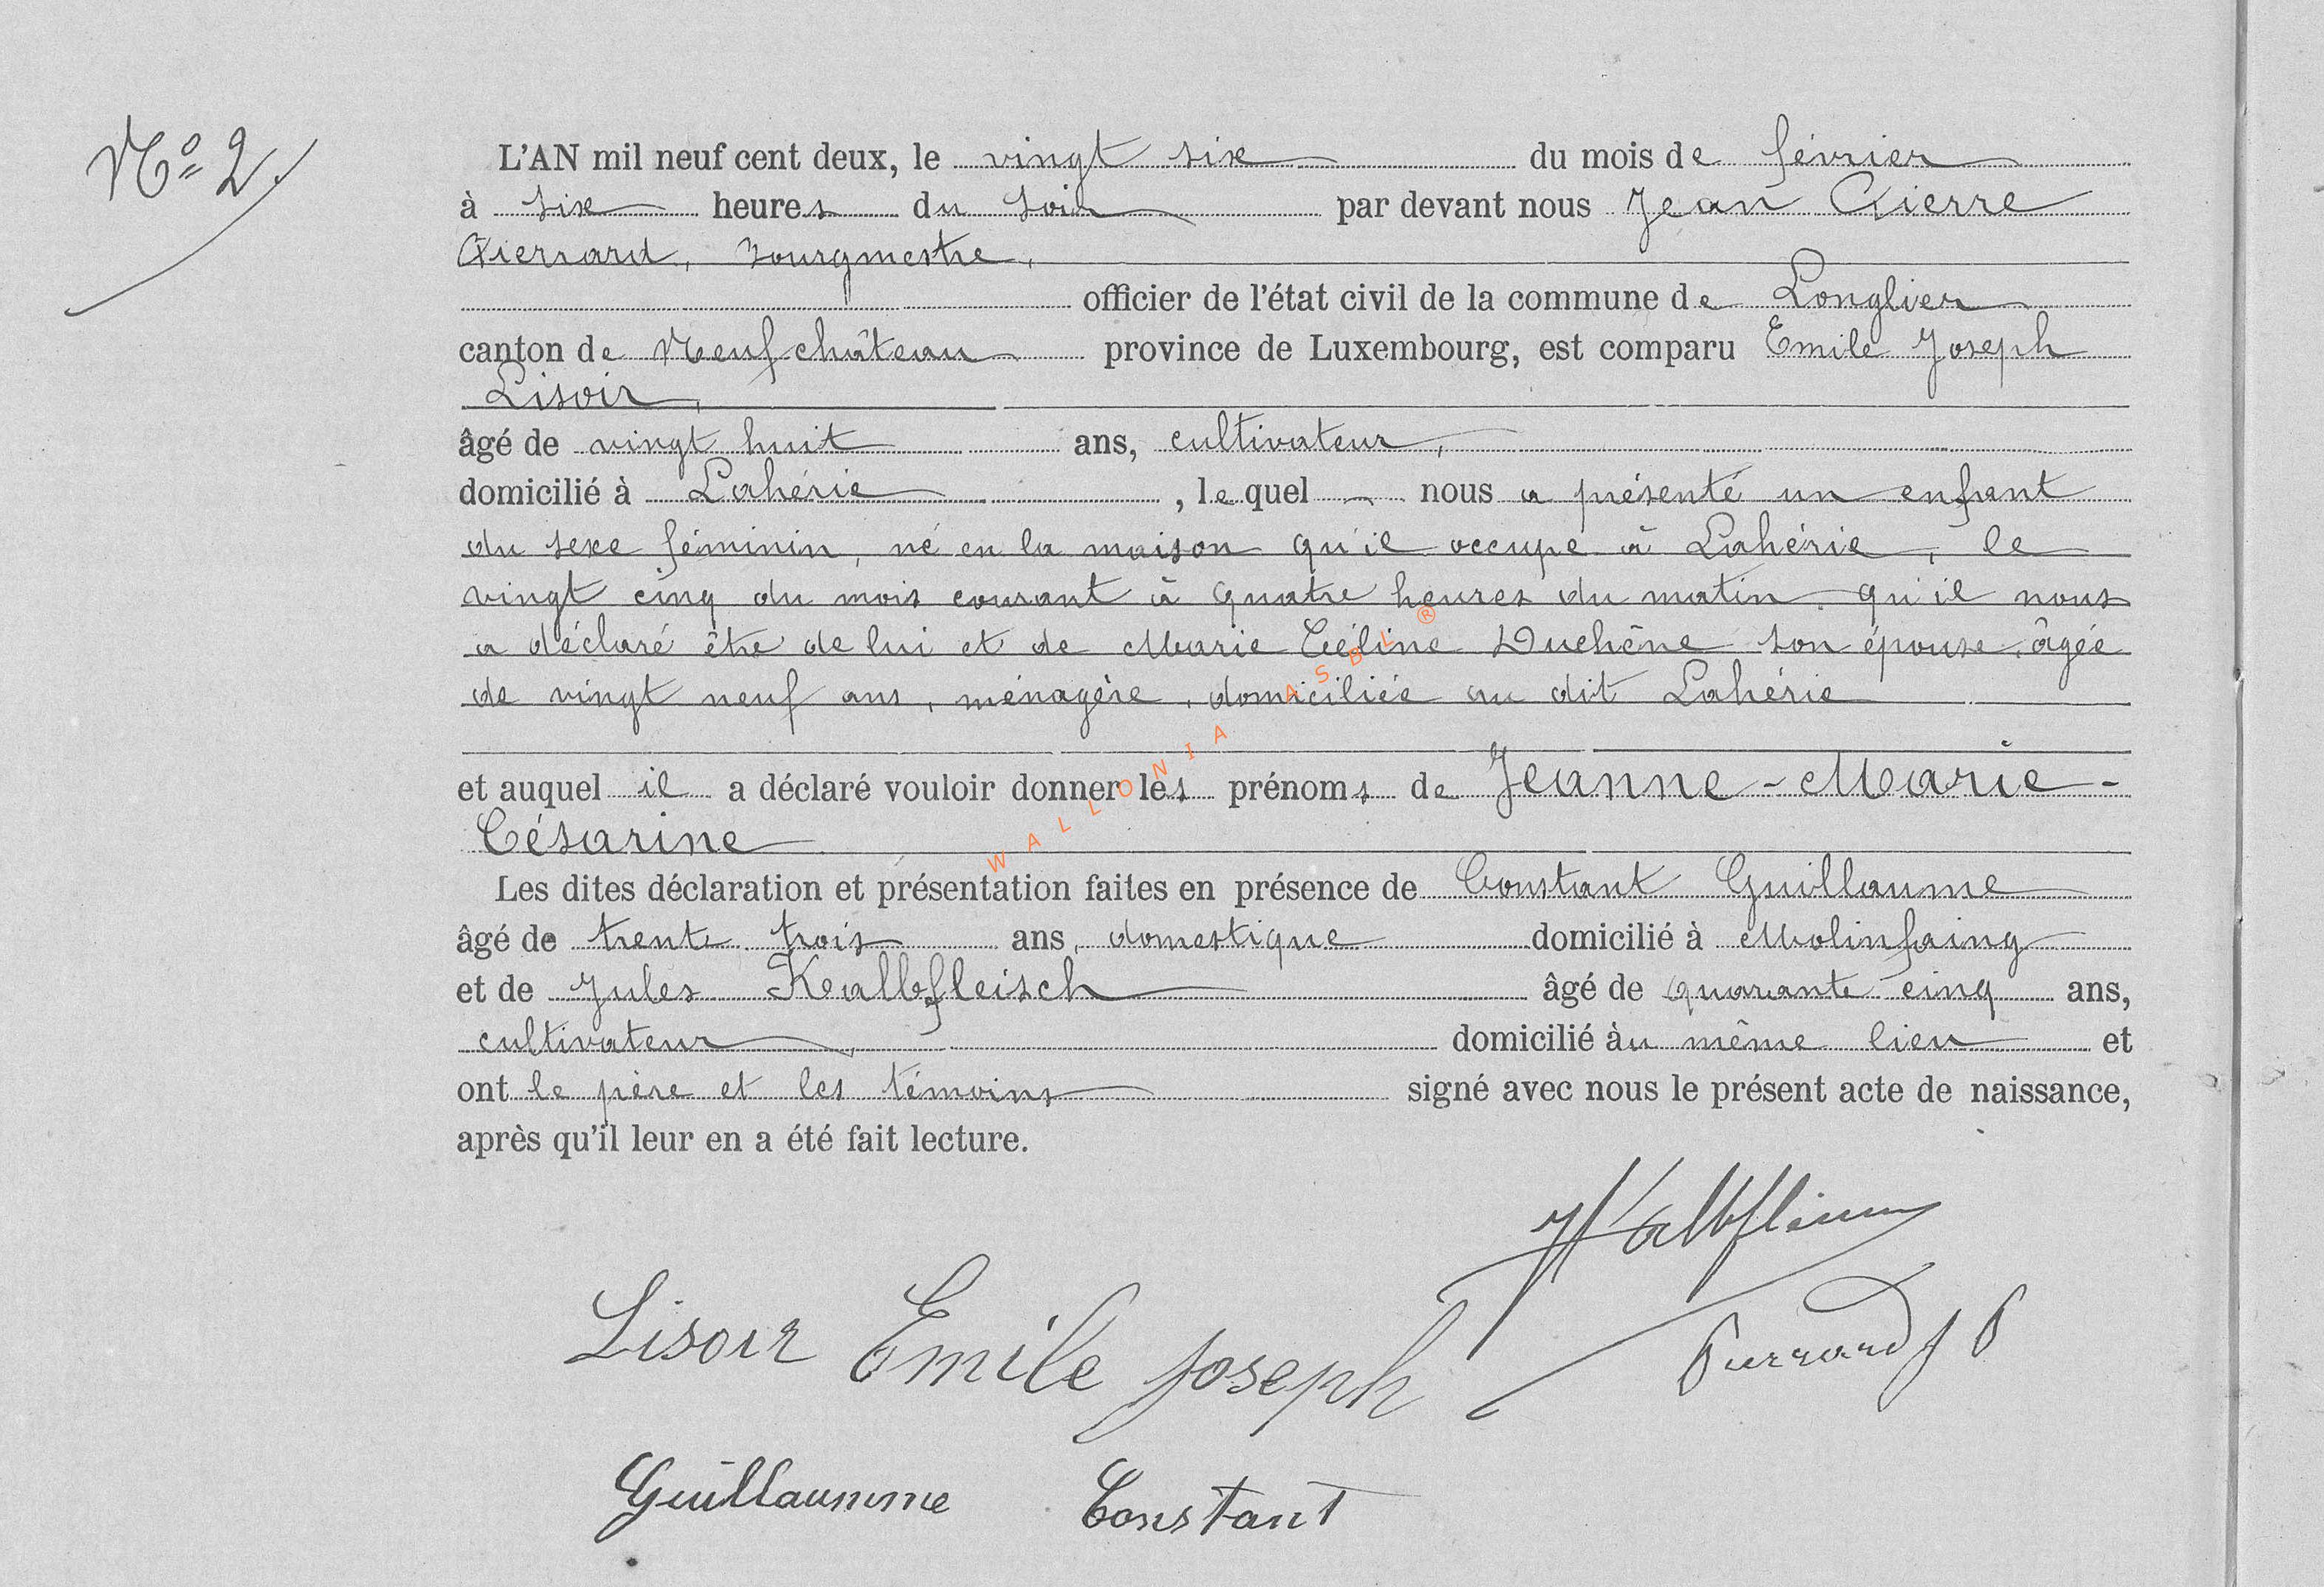 N° 2.
L'AN mil neuf cent deux, le vingt six du mois de février
à six heures du soir par devant nous Jean Pierre
Pierrard, bourgmestre,
officier de l'état civil de la commune de Longlier
canton de Neufchâteau province de Luxembourg, est comparu Emile Joseph
Lisoir,
âgé de vingt huit ans, cultivateur,
domicilié à Lahérie, lequel nous a présenté un enfant
du sexe féminin, né en la maison qu'il occupe à Lahérie, le
vingt cinq du mois courant à quatre heures du matin qu'il nous
a déclaré être de lui et de Marie Céline Duchêne son épouse, âgée
de vingt neuf ans, ménagère, domiciliée au dit Lahérie
et auquel il a déclaré vouloir donner les prénoms de Jeanne-Marie-
Césarine
Les dites déclaration et présentation faites en présence de Constant Guillaume
âgé de trente trois ans, domestique domicilié à Molinfaing
et de Jules Kalbfleisch âgé de quarante cinq ans,
cultivateur, domicilié au même lieu et
ont le père et les témoins signé avec nous le présent acte de naissance,
après qu'il leur en a été fait lecture.
Lisoir Emile Joseph
Pierrard J P
Guillaumme Constant
WALLONIA ASBL ®